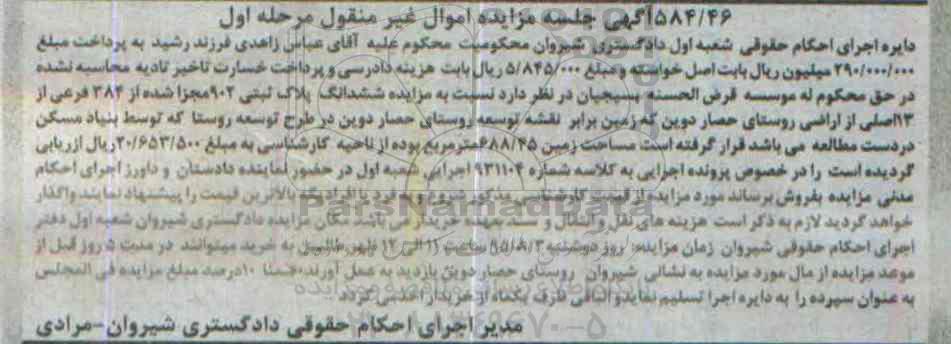 ۵۸۴/۴۶آگهی جلسه مزایده اموال غیر منقول مرحله اول
دایره اجرای احکام حقوقی شعبه اول دادگستری شیروان محکومیت محکوم علیه آقای عباس زاهدی فرزند رشید به پرداخت مبلغ
۲۹۰/۰۰۰/۰۰۰ میلیون ریال بابت اصل خواسته و مبلغ ۵/۸۴۵/۰۰۰ ریال بابت هزینه دادرسی و پرداخت خسارت تاخیر تادیه محاسبه نشده
در حق محکوم له موسسه قرض الحسنه بسیجیان در نظر دارد نسبت به مزایده ششدانگ پلاک ثبتی ۹۰۲مجزا شده از ۳۸۴ فرعی از
۱۳اصلی از اراضی روستای حصار دوین که زمین برابر نقشه توسعه روستای حصار دوین در طرح توسعه روستا که توسط بنیاد مسکن
دردست مطالعه می باشد قرار گرفته است مساحت زمین ۶۸۸/۴۵مترمربع بوده از ناحیه کارشناسی به مبلغ ۲۰/۶۵۳/۵۰۰ریال ارزیابی
گردیده است را در خصوص پرونده اجرایی به کلاسه شماره ۹۳۱۱۰۴ اجرایی شعبه اول در حضور نماینده دادستان و داورز اجرای احکام
مدنی مزایده بفروش برساند مورد مزایده از قیمت کارشناسی مذکور شروع و به فرد یا افرادیکه بالاترین قیمت را پیشنهاد نمایند واگذار
خواهد گردید لازم به ذکر است هزینه های نقل و انتقال و سند بعهده خریدار می باشد مکان مزایده دادگستری شیروان شعبه اول دفتر
اجرای احکام حقوقی شیروان زمان مزایده: روز دوشنبه ۹۵/۸/۳ ساعت ۱۱ الی ۱۲ ظهر طالبین به خرید میتوانند در مدت ۵ روز قبل از
موعد مزایده از مال مورد مزایده به نشانی شیروان روستای حصار دوین بازدید به عمل آورند ضمنا ۱۰درصد مبلغ مزایده فی المجلس
به عنوان سپرده را به دایره اجرا تسلیم نماید و الباقی ظرف یکماه از خریدار اخذ می گردد
مدیر اجرای احکام حقوقی دادگستری شیروان-مرادی
ParsNamadData